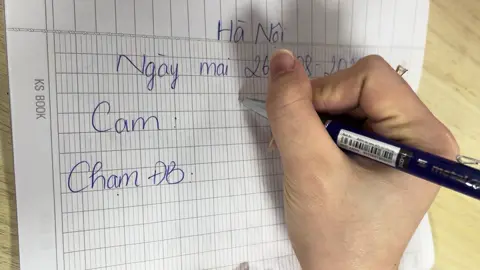 Hà Nội
Ngày mai 26
Cam :
Chạm ĐB.
KS BOOK